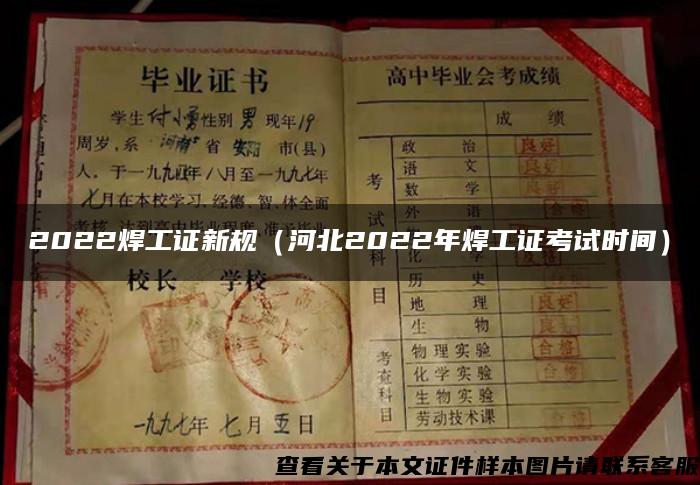 毕业证书
学生付小勇性别男现年19
周岁,系河南省安阳市(县)
人。于一九九四年八月至一九九七年
七月在本校学习,经德、智、体全面
2022焊工证新规（河北2022年焊工证考试时间）
校长 学校
一九九七年七月五日
高中毕业会考成绩
成绩
考试科目
政治 良好
语文 良好
数学
外语 合格
化学 良好
历史
地理 良好
生物 良好
考查科目
物理实验 合格
化学实验 合格
生物实验
劳动技术课 合格
查看关于本文证件样本图片请联系客服